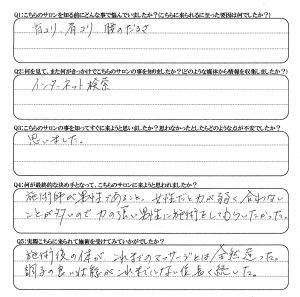 Q1:こちらのサロンを知る前にどんな事で悩んでいましたか?(こちらに来られるに至った要因は何でしたか?)
首コリ、肩コリ、腰のだるさ
Q2:何を見て、また何がきっかけでこちらのサロンの事を知りましたか?(どのような媒体から情報を収集しましたか?)
インターネット検索
Q3:こちらのサロンの事を知ってすぐに来ようと思いましたか?思わなかったとしたらどのような点が不安でしたか?
思いました。
Q4:何が最終的な決め手となって、こちらのサロンに来ようと思われましたか?
施術師が男性であること。女性だと力が弱く合わない
ことが多いので力の強い男性に施術をしてもらいたかった。
Q5:実際こちらに来られて施術を受けてみていかがでしたか?
施術後の体が、これまでのマッサージとは全然違った。
調子の良い状態がこれまでにない位長く続いた。